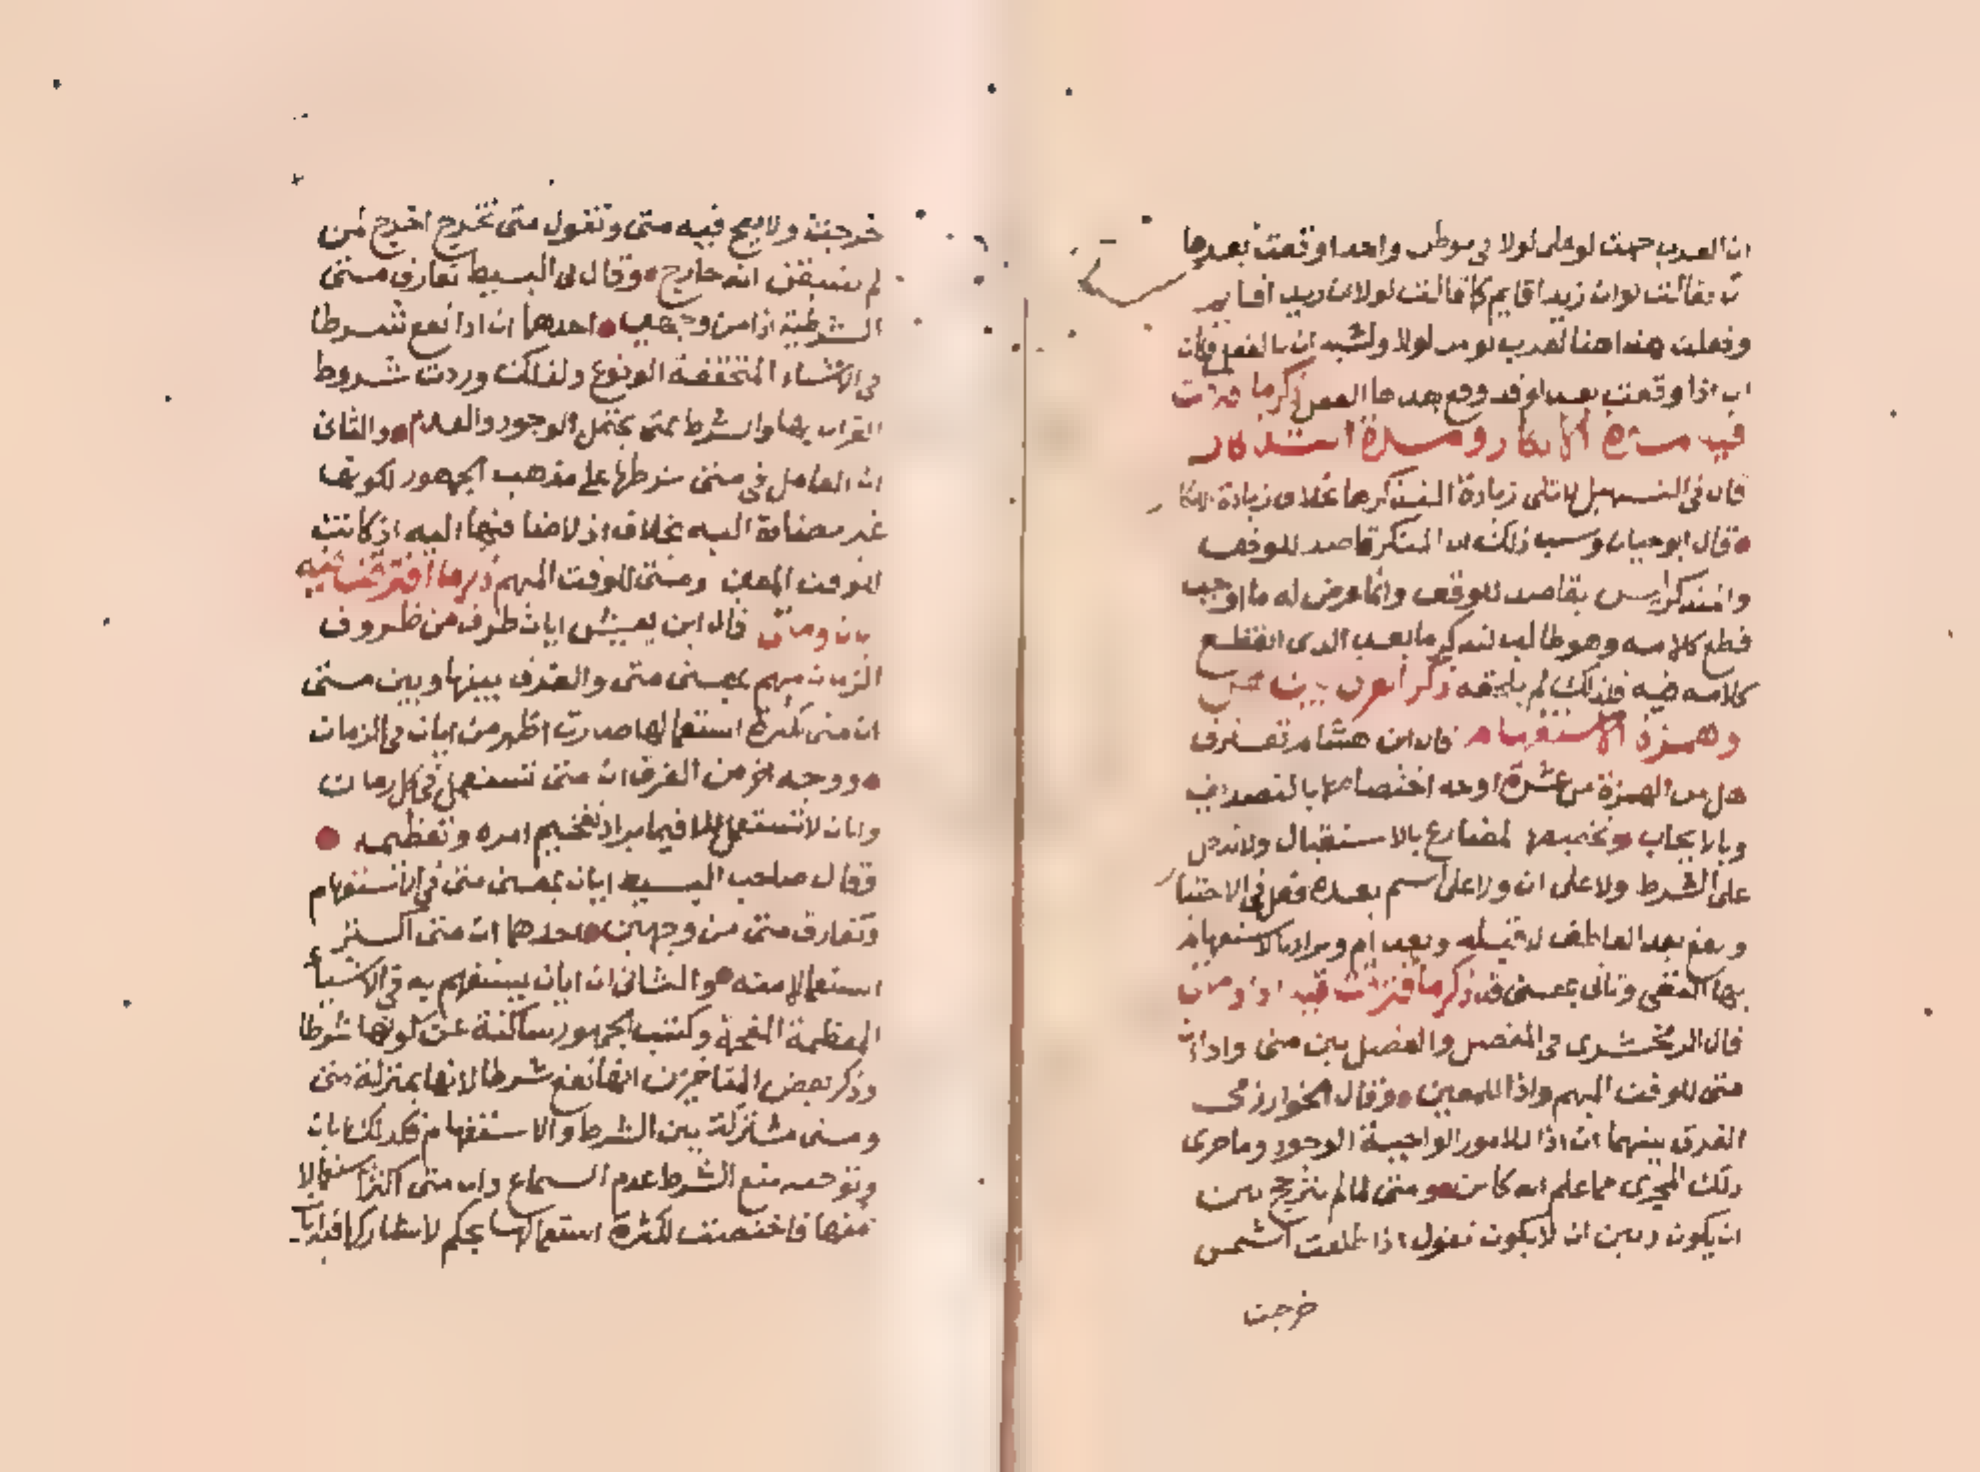 ان العرب حملت لو على لولا في موطن واحد اوقعت بعدها
ان فقالت لو ان زيدا قايم كما قالت لولا ان زيدا قايم
وفعلت هذا هنا لقرب لو من لولا ولشبه ان بالفعل فكان
ان اذا وقعت بعد لو قد وقع بعدها الفعل ذكر ما فرقت
فيه مدة الانكار ومدة التذكار
قال في التسهيل لا تلى زيادة التذكر هاء بخلاف زيادة الانكار
قال ابو حيان وسبب ذلك ان المنكر قاصد للوقف
والمتذكر ليس بقاصد للوقف وانما عرض له ما اوجب
قطع كلامه وهو طالب لتذكر ما بعد الذي انقطع
كلامه فيه فلذلك لم يلحقه ذكر الفرق بين هل
وهمزة الاستفهام قال ابن هشام تفترق
هل من الهمزة من عشرة اوجه اختصاصها بالتصديق
وبالايجاب وتخصيصها المضارع بالاستقبال ولا تدخل
على الشرط ولا على ان ولا على اسم بعده فعل في الاختيار
وتقع بعد العاطف لا قبله وبعد ام ويراد بالاستفهام
بها النفي وتاتي بمعنى قد ذكر ما افترقت فيه اذا ومتى
قال الزمخشري في المفصل والفصل بين متى واذا ان
متى للوقت المبهم واذا للمعين وقال الخوارزمي
الفرق بينهما ان اذا للامور الواجبة الوجود وما جرى
ذلك المجرى مما علم انه كاين ومتى لما لم يترجح بين
ان يكون وبين ان لا يكون تقول اذا طلعت الشمس
خرجت
خرجت ولا يصح فيه متى وتقول متى تخرج اخرج لمن
لم يتيقن انه خارج وقال في البسيط تفارق متى
الشرطية اذا من وجهين احدهما ان اذا تقع شرطا
في الاشياء المتحققة الوقوع ولذلك وردت شروط
القران بها والشرط بمتى يحتمل الوجود والعدم والثاني
ان العامل في متى شرطها على مذهب الجمهور لكونها
غير مضافة اليه بخلاف اذا لاضافتها اليه اذ كانت
للوقت المعين ومتى للوقت المبهم ذكر ما افترقت فيه
ايان ومتى قال ابن يعيش ايان ظرف من ظروف
الزمان مبهم بمعنى متى والفرق بينها وبين متى
ان متى لكثرة استعمالها صارت اظهر من ايان في الزمان
ووجه اخر من الفرق ان متى تستعمل في كل زمان
وايان لا تستعمل الا فيما يراد تفخيم امره وتعظيمه
وقال صاحب البسيط ايان بمعنى متى في الاستفهام
وتفارق متى من وجهين احدهما ان متى اكثر
استعمالا منه والثاني ان ايان يستفهم به في الاشياء
المعظمة المفخمة وكتب الجمهور ساكتة عن كونها شرطا
وذكر بعض المتاخرين انها تقع شرطا لانها بمنزلة متى
ومتى مشتركة بين الشرط والاستفهام فكذلك ايان
وتوجيه منع الشرط عدم السماع وان متى اكثر استعمالا
منها فاختصت لكثرة استعمالها بحكم لا تشاركها فيه ايان